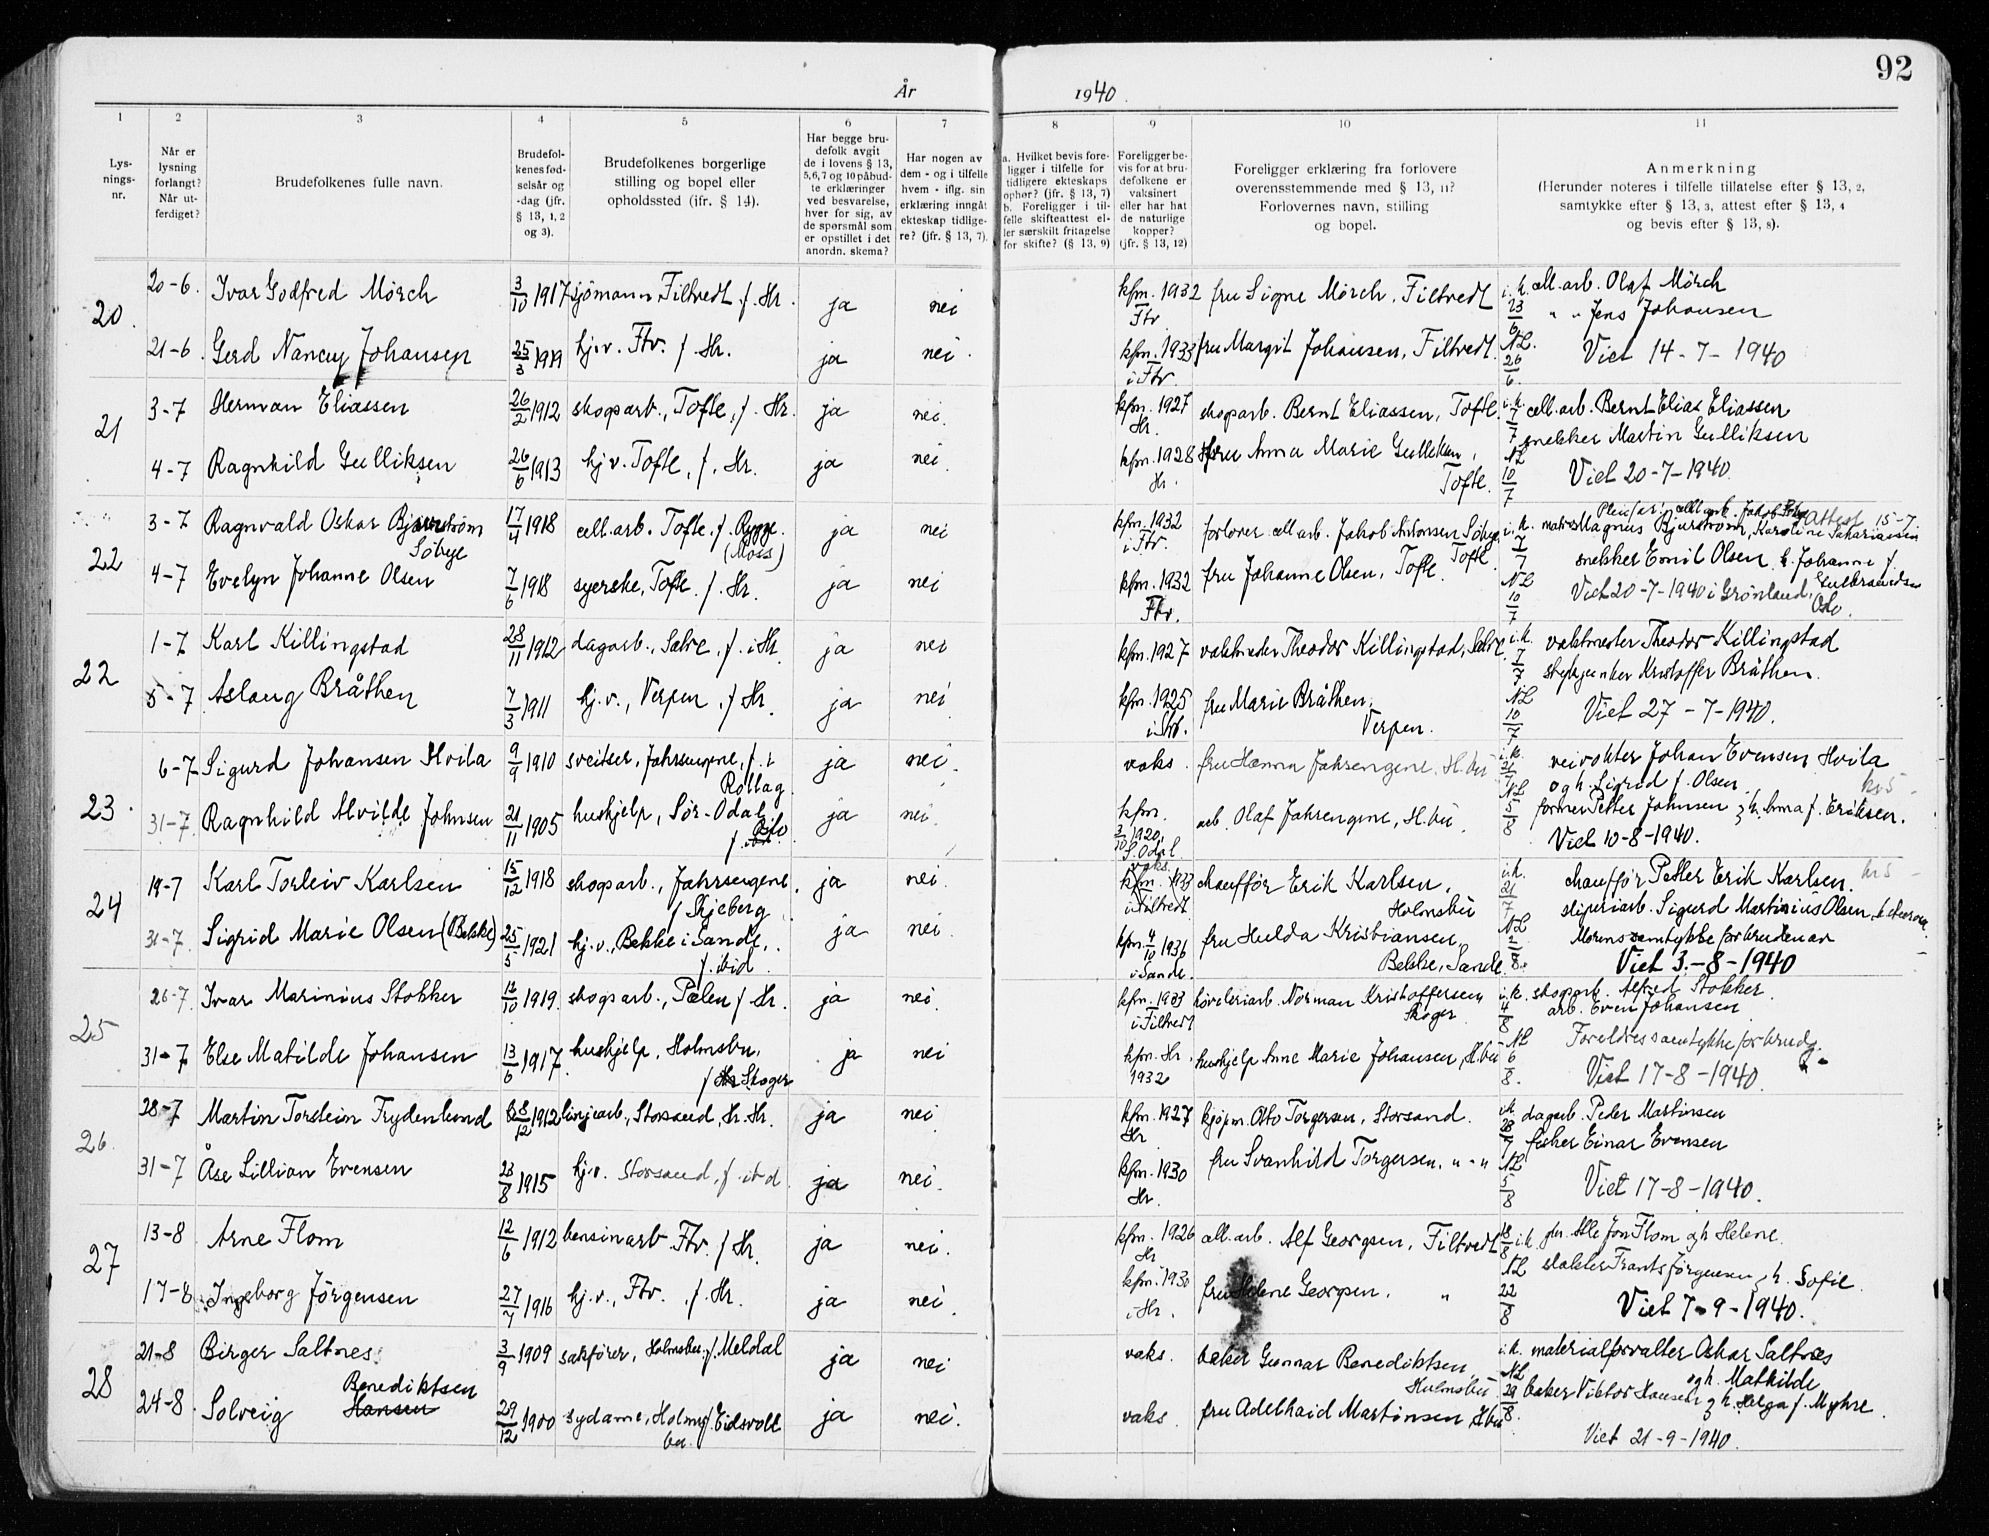 92
År 1940.
1 2 3 4 5 6 7 8 9 10 11
Lys-
nings-
nr.
Når er
lysning
forlangt?
Når ut-
ferdiget?
Brudefolkenes fulle navn.
Brudefol-
kenes fød-
selsår og
-dag (jfr.
§ 13, 1, 2
og 3).
Brudefolkenes borgerlige
stilling og bopel eller
opholdssted (ifr. § 14).
Har begge bru-
defolk avgit
de i lovens § 13,
5,6,7 og 10 påbud-
te erklæringer
ved besvarelse,
hver for sig, av
de spørsmål som
er opstillet i det
anordn. skema?
Har nogen av
dem - og i tilfelle
hvem - iflg. sin
erklæring inngått
ekteskap tidlige-
re? (jfr. § 13, 7).
a. Hvilket bevis fore-
ligger i tilfelle for
tidligere ekteskaps
ophør? (jfr. § 13, 7)
b. Foreligger i til-
felle skifteattest el-
ler særskilt fritagelse
for skifte? (§ 13, 9)
Foreligger be-
vis for at bru-
defolkene er
vaksinert
eller har hat
de naturlige
kopper?
(jfr. § 13, 12)
Foreligger erklæring fra forlovere
overensstemmende med § 13, 11?
Forlovernes navn, stilling
og bopel.
Anmerkning
(Herunder noteres i tilfelle tillatelse efter § 13, 2,
samtykke efter § 13, 3, attest efter § 13, 4
og bevis efter § 13, 8).
20. 20-6. Ivar Godfred Mörch 3/10 1917 sjömann, Filtvedt, f. Hr. ja nei kfm. 1932 Ftv. fru Signe Mörch, Filtvedt i.k. 23/6 cell. arb. Olaf Mörch
" " Jens Johansen
21-6. Gerd Nancy Johansen 25/3 1919 hj.v. Ftv. f. Hr. ja nei. kfm. 1933 i Ftv. fru Margit Johansen, Filtvedt. NL. 26/6. Viet 14-7-1940
21 3-7 Herman Eliassen 26/2 1912 skogsarb., Tofte, f. Hr. ja nei. kfm. 1927 Hr. skogsarb. Bernt Eliassen, Tofte. i.k. 7/7 cell. arb. Bernt Elias Eliassen
snekker Martin Gulliksen
4-7 Ragnhild Gulliksen 26/6 1913 hj.v. Tofte, f. Hr. ja nei. kfm. 1928 Hr. fru Anna Marie Gulliksen, Tofte. NL 10/7 Viet 20-7-1940.
22 3-7 Ragnvald Oskar Bjurström Söbye 17/4 1918 cell. arb. Tofte. f. Rygge (Moss) ja nei kfm. 1932 i Ftv. forlover cell. arb. Jakob Antonsen Söbye, Tofte. i.k. 7/7 Attest 15-7
Magnus Bjurström, Karoline Sakariassen
snekker Emil Olsen h. Johanne f. Gulbrandsen
4-7 Evelyn Johanne Olsen 7/6 1918 syerske, Tofte. f. Hr. ja nei kfm. 1932 Ftv. fru Johanne Olsen, Tofte. NL 10/7 Viet 20-7-1940 i Grønland, Oslo.
22 1-7 Karl Killingstad 28/11 1912 dagarb., Sætre, f. i Hr. ja nei kfm. 1927 vaktmester Theodor Killingstad, Sætre i.k. 7/7 vaktmester Theodor Killingstad
Kristoffer Bråthen.
5-7 Aslaug Bråthen 7/3 1911 hj.v., Verpen, f. Hr. ja nei kfm. 1925 fru Marie Bråthen, Verpen. NL 10/7 Viet 27-7-1940.
23. 6-7 Sigurd Johansen Hvila 9/9 1910 sveitser, Jahrsengene, f. i Rollag ja nei. vaks. fru Hanna Jahrengene, H.bu i.k. NL veivokter Johan Evensen Hvila
og h. Sigrid f. Olsen.
31-7. Ragnhild Alvilde Johnsen 21/11 1905 hushjelp, Sør-Odal. f. Oslo ja nei. kfm. 3/10 1920, S. Odal. arb. Olaf Jahrengene, H.bu. 5/8 former Petter Johnsen og h. Anna f. Eriksen.
Viet 10-8-1940.
24 19-7 Karl Torleiv Karlsen 15/12 1918 skogsarb., Jahrsengene, f. Skjeberg ja nei. vaks. kfm. 1933 i Filtvedt chauffør Erik Karlsen, Holmsbu i.k. 21/7 chauffør Petter Erik Karlsen.
sliperiarb. Sigurd Martinius Olsen
31-7. Sigrid Marie Olsen (Bekke) 25/5 1921 hj.v., Bekke i Sande, f. ibid ja nei. kfm. 4/10 1936 i Sande. fru Hulda Kristiansen, Bekke, Sande NL 2/8. Morens samtykke for bruden av
Viet 3.-8-1940
25 26-7. Ivar Marinius Stokker 12/10 1919. skogsarb., Pælen f. Hr. ja nei. kfm. 1933 i Filtvedt høvleriarb. Norman Kristoffersen, Skoger i.k. 4/8 skogarb. Alfred Stokker.
arb. Even Johansen
31-7 Else Matilde Johansen 13/6 1917. hushjelp, Holmsbu, f. Skoger ja nei kfm. Hr. 1932 hushjelp Anne Marie Johansen, H.bu NL 6/8. Foreldres samtykke for brudg.
Viet 17-8-1940.
26. 28-7 Martin Torstein Frydenlund 28/12 1912 linjearb., Storsand, Hr. Hr. ja nei kfm. 1927 Hr kjøpm. Otto Torgersen, Storsand. i.k. 28/7 dagarb. Peder Martinsen
fisker Einar Evensen
31-7 Åse Lillian Evensen 23/8 1915 hj.v. Storsand, f. ibid. ja nei. kfm. 1930 Hr. fru Svanhild Torgersen, " - " NL 5/8 Viet 17-8-1940.
27 13-8 Arne Flom 12/6 1912 bensinarb. Ftv. f. Hr. ja nei. kfm. 1926 Hr cell. arb. Alf Georgsen, Filtvedt 18/8 i.k. Jon Flom og h Helene.
slakter Frants Jörgensen og h. Sofie
17-8 Ingeborg Jörgensen 27/7 1916 hj.v., Ftv. f. Hr. ja nei. kfm. 1930 i Hr. fru Helene Georgsen, " NL 22/8 Viet 7-9-1940.
28 21-8 Birger Saltnes. 3/9 1909 sakfører, Holmsbu, f. Meldal ja nei vaks. baker Gunnar Benediktsen, Holmsbu i.k. materialforvalter Oskar Saltnes
og h. Mathilde
24-8. Solveig Benediktsen Hansen 29/12 1900 sydame, Holmsbu. f. Eidsvoll ja nei. vaks. fru Adelhaid Martinsen, H.bu NL 29/8. baker Viktor Hansen og h. Helga f. Myhre.
Viet 21-9-1940.